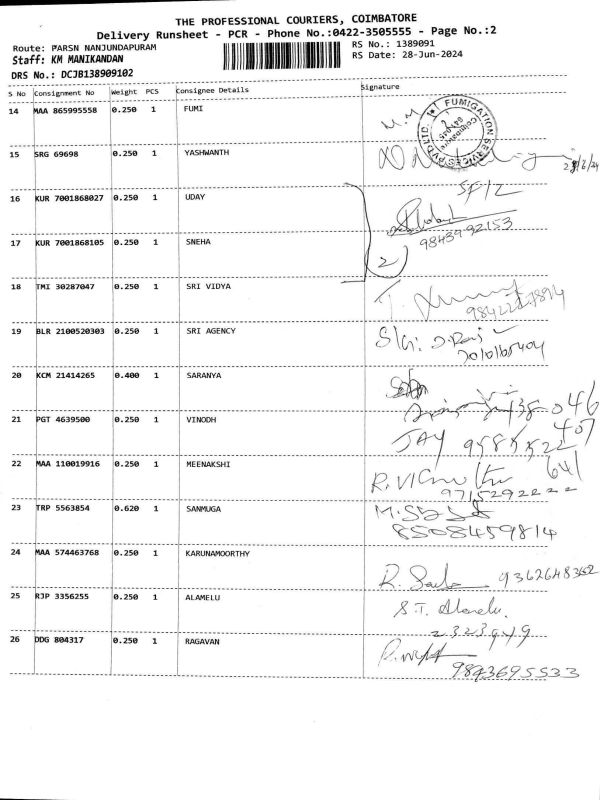 THE PROFESSIONAL COURIERS, COIMBATORE
Delivery Runsheet - PCR - Phone No.:0422-3505555 - Page No.:2
Route: PARSN NANJUNDAPURAM
RS No.: 1389091
Staff: KM MANIKANDAN
RS Date: 28-Jun-2024
DRS No.: DCJB138909102
S No Consignment No Weight PCS Consignee Details Signature
14 MAA 865995558 0.250 1 FUMI
FUMIGATION SERVICES PVT LTD.
15 SRG 69698 0.250 1 YASHWANTH
16 KUR 7001868027 0.250 1 UDAY
98439 92153
17 KUR 7001868105 0.250 1 SNEHA
2
18 TMI 30287047 0.250 1 SRI VIDYA
19 BLR 2100520303 0.250 1 SRI AGENCY
20 KCM 21414265 0.400 1 SARANYA
21 PGT 4639500 0.250 1 VINODH
JAY
22 MAA 110019916 0.250 1 MEENAKSHI
641
9715292222
23 TRP 5563854 0.620 1 SANMUGA
8508459814
24 MAA 574463768 0.250 1 KARUNAMOORTHY
9362648362
25 RJP 3356255 0.250 1 ALAMELU
S.T. Alamelu.
2323949
26 DDG 804317 0.250 1 RAGAVAN
9843695533